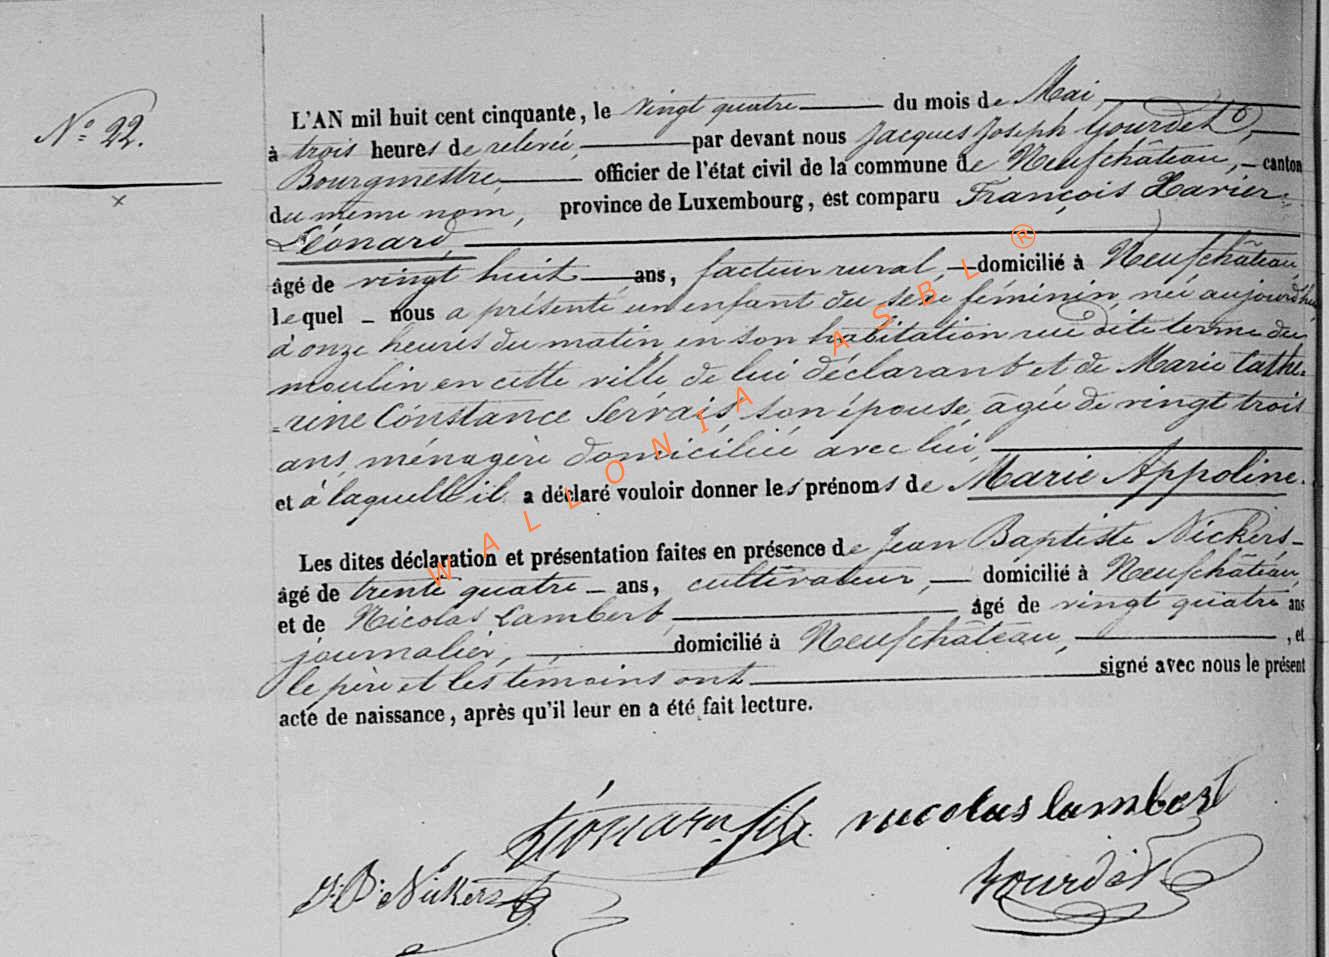 N° 22.
L'AN mil huit cent cinquante, le vingt quatre du mois de Mai,
à trois heures de relevée, par devant nous Jacques Joseph Gourdet,
Bourgmestre, officier de l'état civil de la commune de Neufchâteau, canton
du même nom, province de Luxembourg, est comparu François Xavier
Léonard,
âgé de vingt huit ans, facteur rural, domicilié à Neufchâteau,
lequel nous a présenté un enfant du sexe féminin né aujourd'hui
à onze heures du matin en son habitation rue dite terme du
moulin en cette ville de lui déclarant et de Marie Cathe-
-rine Constance Servais son épouse âgée de vingt trois
ans, ménagère domiciliée avec lui,
et à laquelle il a déclaré vouloir donner les prénoms de Marie Appoline.
Les dites déclaration et présentation faites en présence de Jean Baptiste Nickers
âgé de trente quatre ans, cultivateur, domicilié à Neufchâteau,
et de Nicolas Lambert, âgé de vingt quatre ans
journalier, domicilié à Neufchâteau, , et
le père et les temoins ont signé avec nous le présent
acte de naissance, après qu'il leur en a été fait lecture.
Léonard fils nicolas lambert
J. B. Nickers Gourdet
WALLONIA ASBL ®